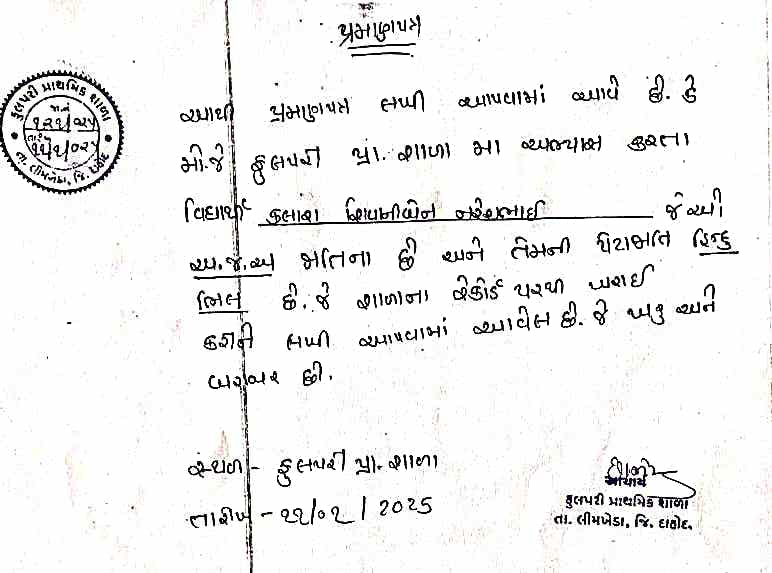 પ્રમાણપત્ર
ફુલપરી પ્રાથમિક શાળા
તા. લીમખેડા, જિ. દાહોદ
આથી પ્રમાણપત્ર લખી આપવામાં આવે છે. કે
મો.જે ફુલપરી પ્રા. શાળા મા અભ્યાસ કરતા
વિદ્યાર્થી કલારા શિવાનીબેન નરેશભાઈ જેઓ
અ.જ.જા જાતિના છે અને તેમની પેટાજાતિ હિન્દુ
ભિલ છે. જે શાળાના રેકોર્ડ પરથી ખરાઈ
કરીને લખી આપવામાં આવેલ છે. જે ખરુ અને
બરાબર છે.
સ્થળ - ફુલપરી પ્રા. શાળા
તારીખ - ૨૨/૦૨/2025
આચાર્ય
ફુલપરી પ્રાથમિક શાળા
તા. લીમખેડા, જિ. દાહોદ.